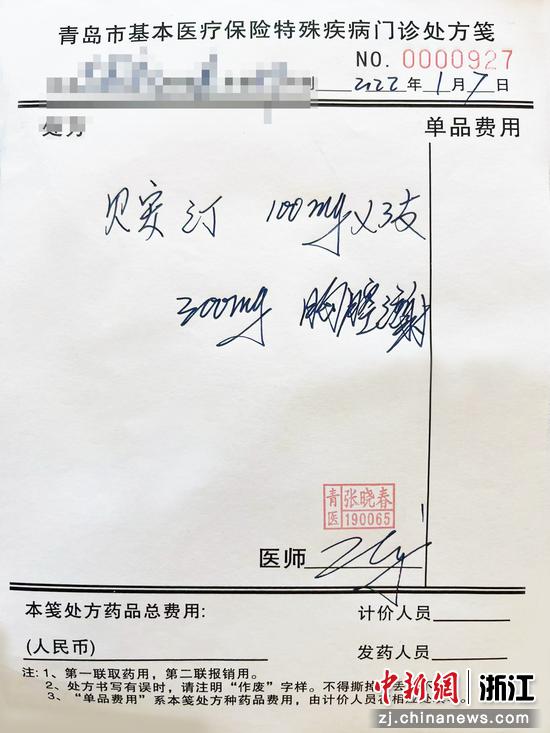 青岛市基本医疗保险特殊疾病门诊处方笺
NO. 0000927
2022年1月7日
处方
单品费用
贝实汀 100mg×3支
300mg 胸腔注射
青医 张晓春 190065
医师
本笺处方药品总费用:
计价人员
(人民币)
发药人员
注: 1、第一联取药用，第二联报销用。
2、处方书写有误时，请注明“作废”字样。不得撕掉丢
3、“单品费用”系本笺处方种药品费用，由计价人员在相应处
中新网 浙江
zj.chinanews.com